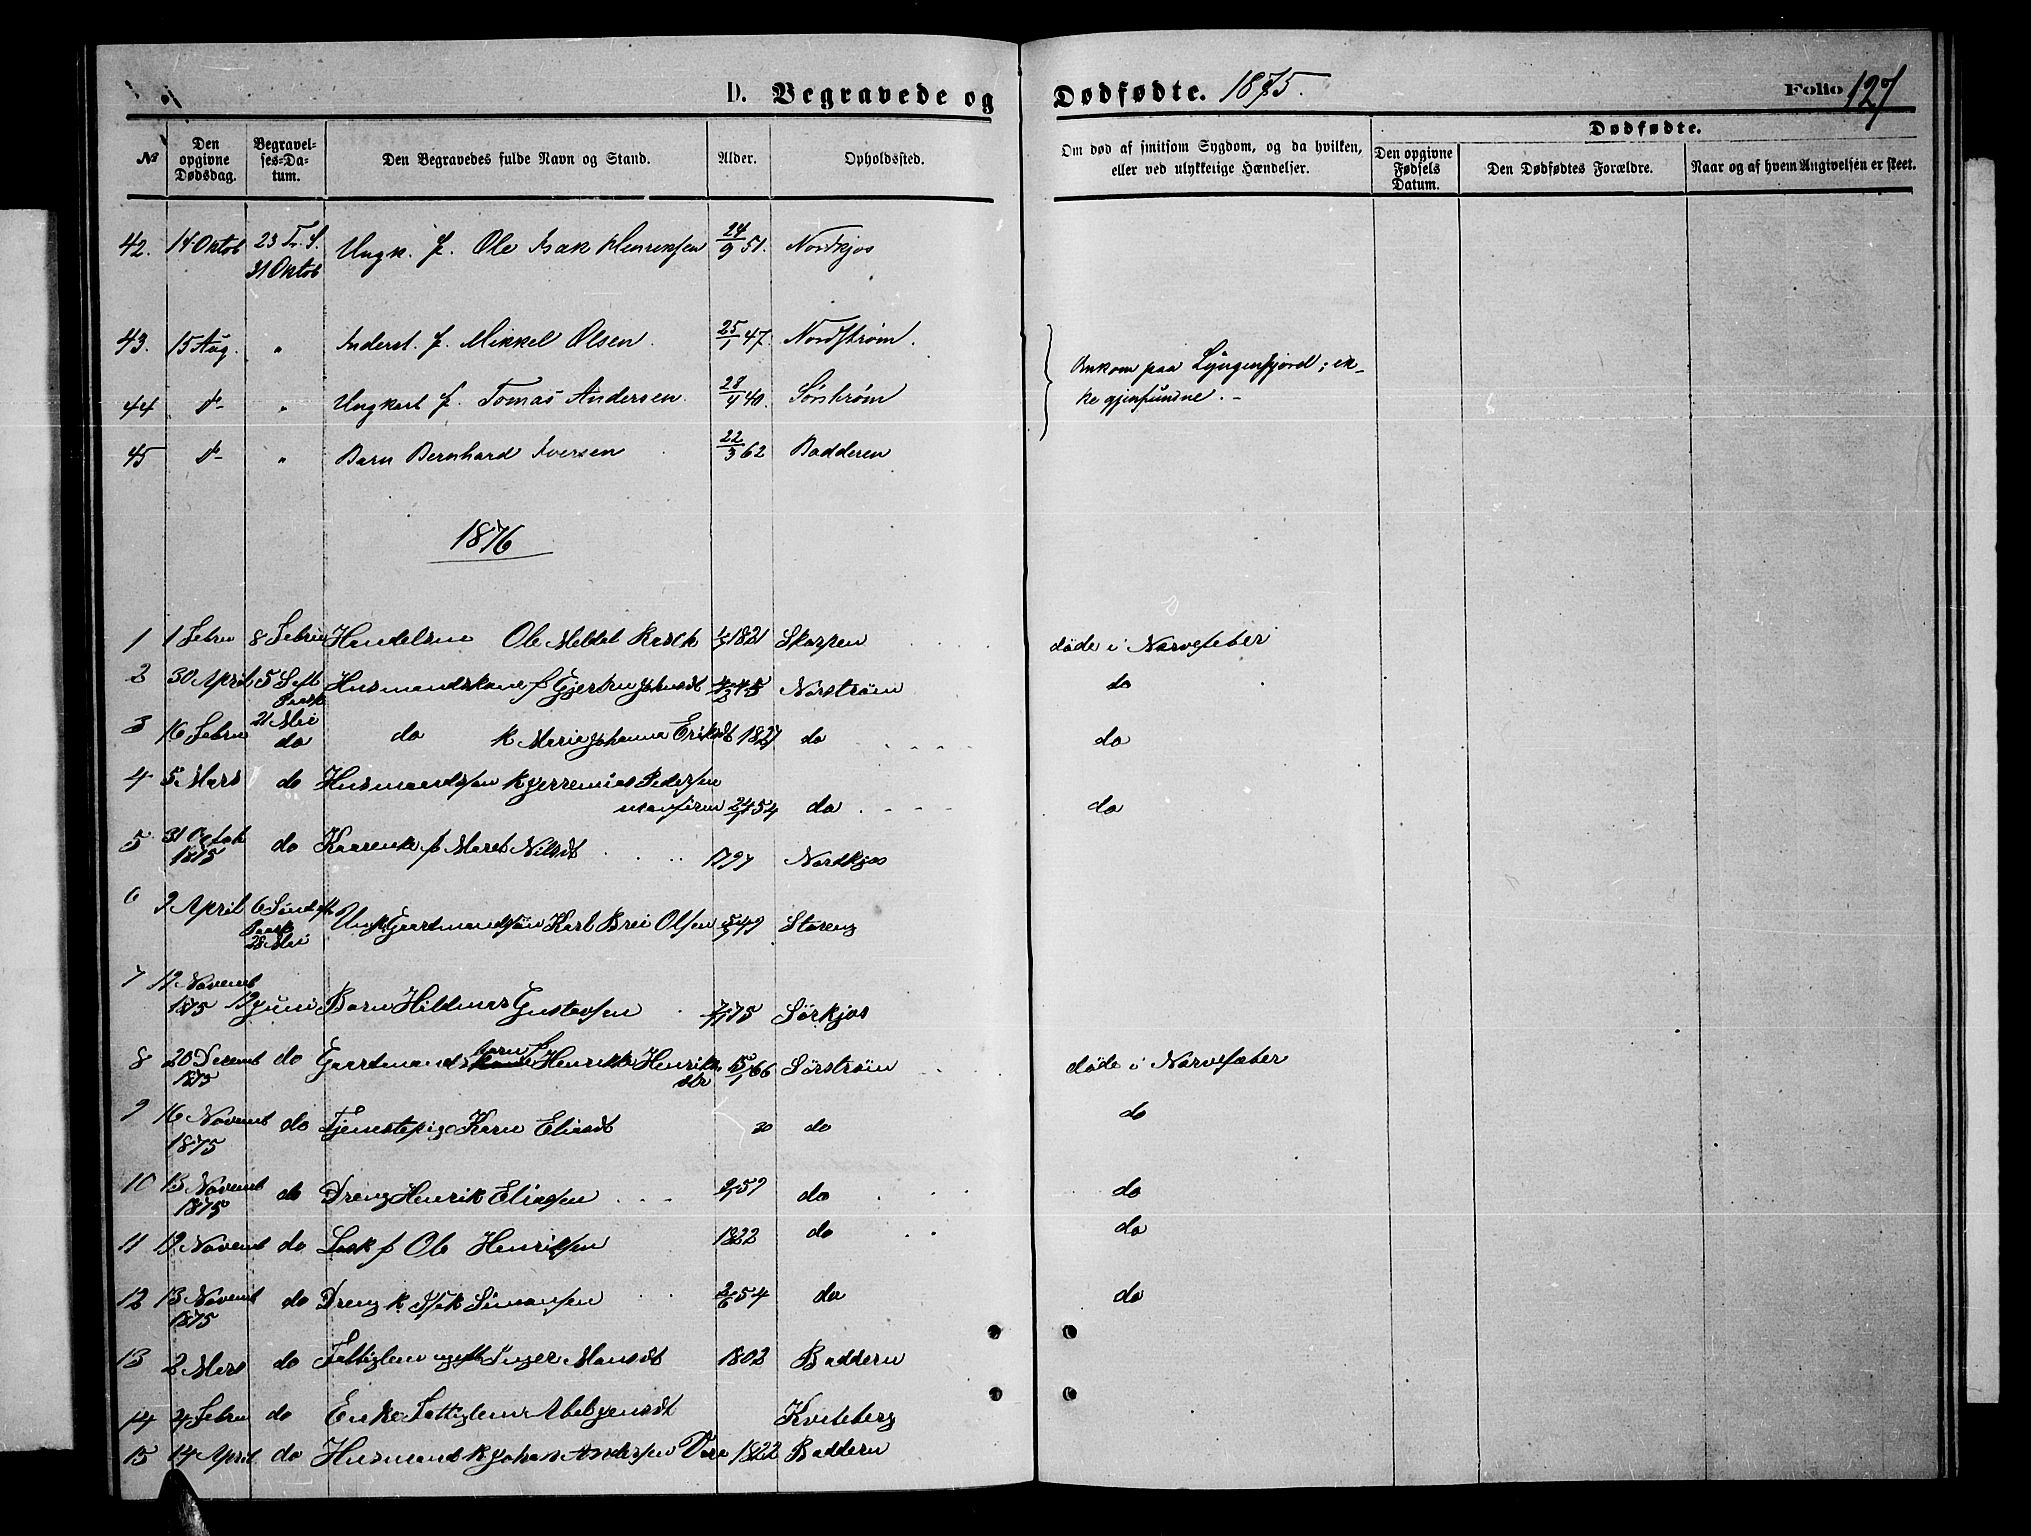 D. Begravede og Dødfødte. 1875. Folio 127
№ Den opgivne Dødsdag. Begravelses-Datum. Den Begravedes fulde Navn og Stand. Alder. Opholdssted. Om død af smitsom Sygdom, og da hvilken, eller ved ulykkelige Hændelser. Den opgivne Fødsels Datum. Den Dødfødtes Forældre. Naar og af hvem Angivelsen er skeet.
Dødfødte.
42. 14 Oktob 23 Tr. S. Ungk. f. Ole Isak Henriksen 24/9 51. Nordkjos
31 Oktob
43. 15 Aug. " Inderst. f. Mikkel Olsen. 25/1 47. Nordstrøm.
Omkom paa Lyngenfjord; ik-
44 d- " Ungkarl f. Tomas Andersen. 28/4 40. Sørstrøm
ke gjenfundne. -
45 d- " Barn Bernhard Iversen 22/3 62 Badderen
1876
1 1 Febru 8 Febru Ole Meldal Rasch 1821 Skorpen døde i Narvefeber
2 30 April 5 Husmandskone f Gjertru Johnsdt 45 Norstrøm do
Paask
21 Mai
3 16 Febru do do k Marie Johanna Eriksdt 1827 do do
4 5 Mars do Husmandssøn k Jerremias Pedersen
24/1 54 do do
5 31 Octob do f Maret Nilsdt 1797 Nordkjos
1875
6 2 April 6 Ungk Gaardmandsøn Karl Brei Olsen 49 Storeng
Paask
28 Mai
7 12 Novemb
1875 12 Juni Barn Hildmar Gustavsen 75 Sørkjos
8 20 Decemb do Gaardmands barn f Henrikke Henriks 5/1 66 Sørstrøm døde i Narvefeber
1875 dtr
9 16 Novemb do Tjenestepige Karn Eliasdt 30 do do
1875
10 13 Novemb do Dreng Henrik Eliassen 57 do do
1875
11 12 Novemb do f Ole Henriksen 1822 do do
12 13 Novemb do Dreng k Isak Simonsen 2/6 54 do do
1875
13 2 Mars do Fattiglem ugift Inger Monsdt 1802 Baddern
14 4 Febru do Enke Fattiglem Abel Jensdt Kviteberg
15 14 April do Husmand k Johan Andersen 1822 Baddern